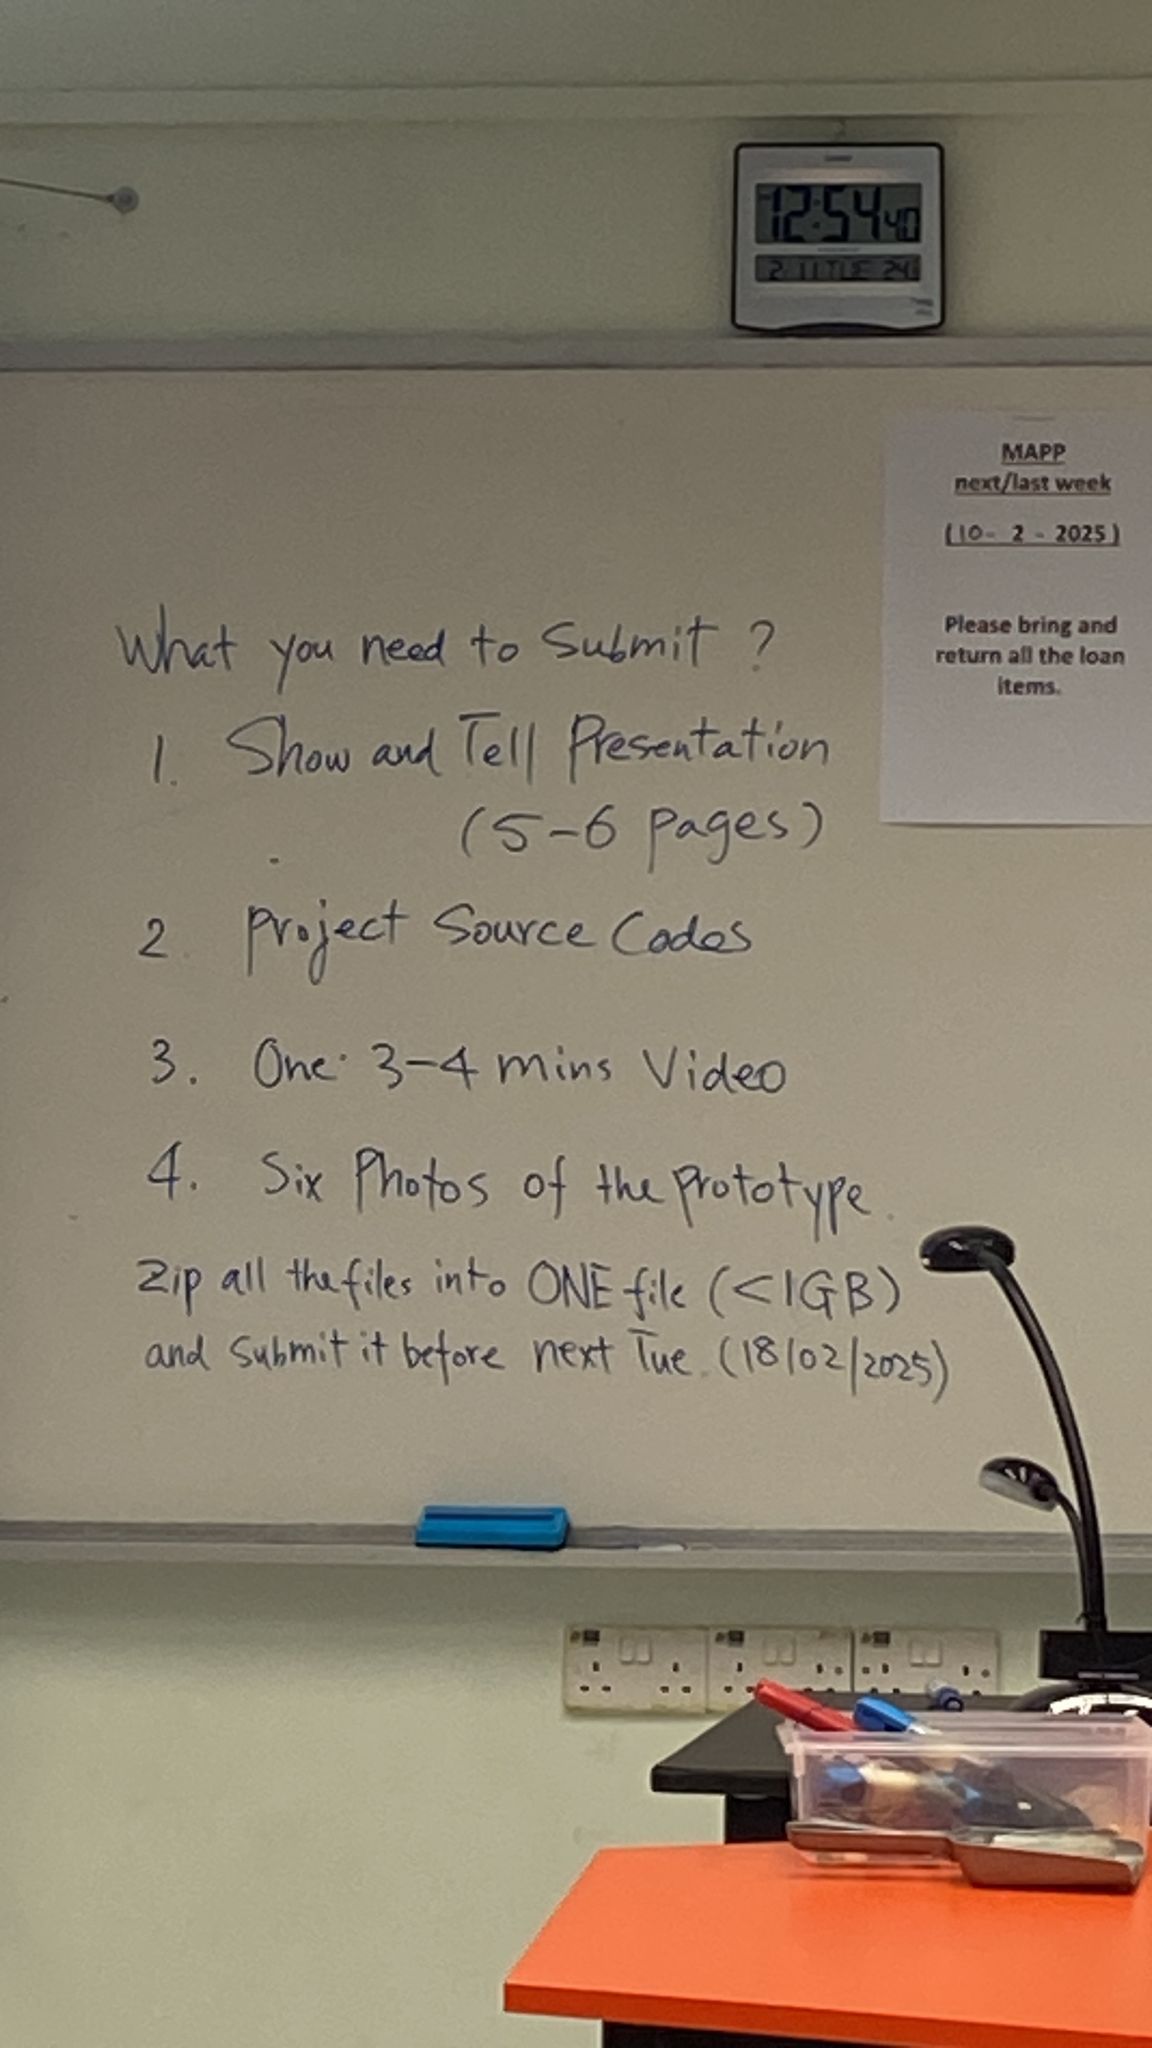 12:54 40
2 11 TUE 24
MAPP
next/last week
(10- 2 - 2025)
Please bring and
return all the loan
items.
What you need to Submit ?
1. Show and Tell Presentation
(5-6 pages)
2. Project Source Codes
3. One 3-4 mins Video
4. Six Photos of the prototype.
Zip all the files into ONE file (<1GB)
and submit it before next Tue. (18/02/2025)